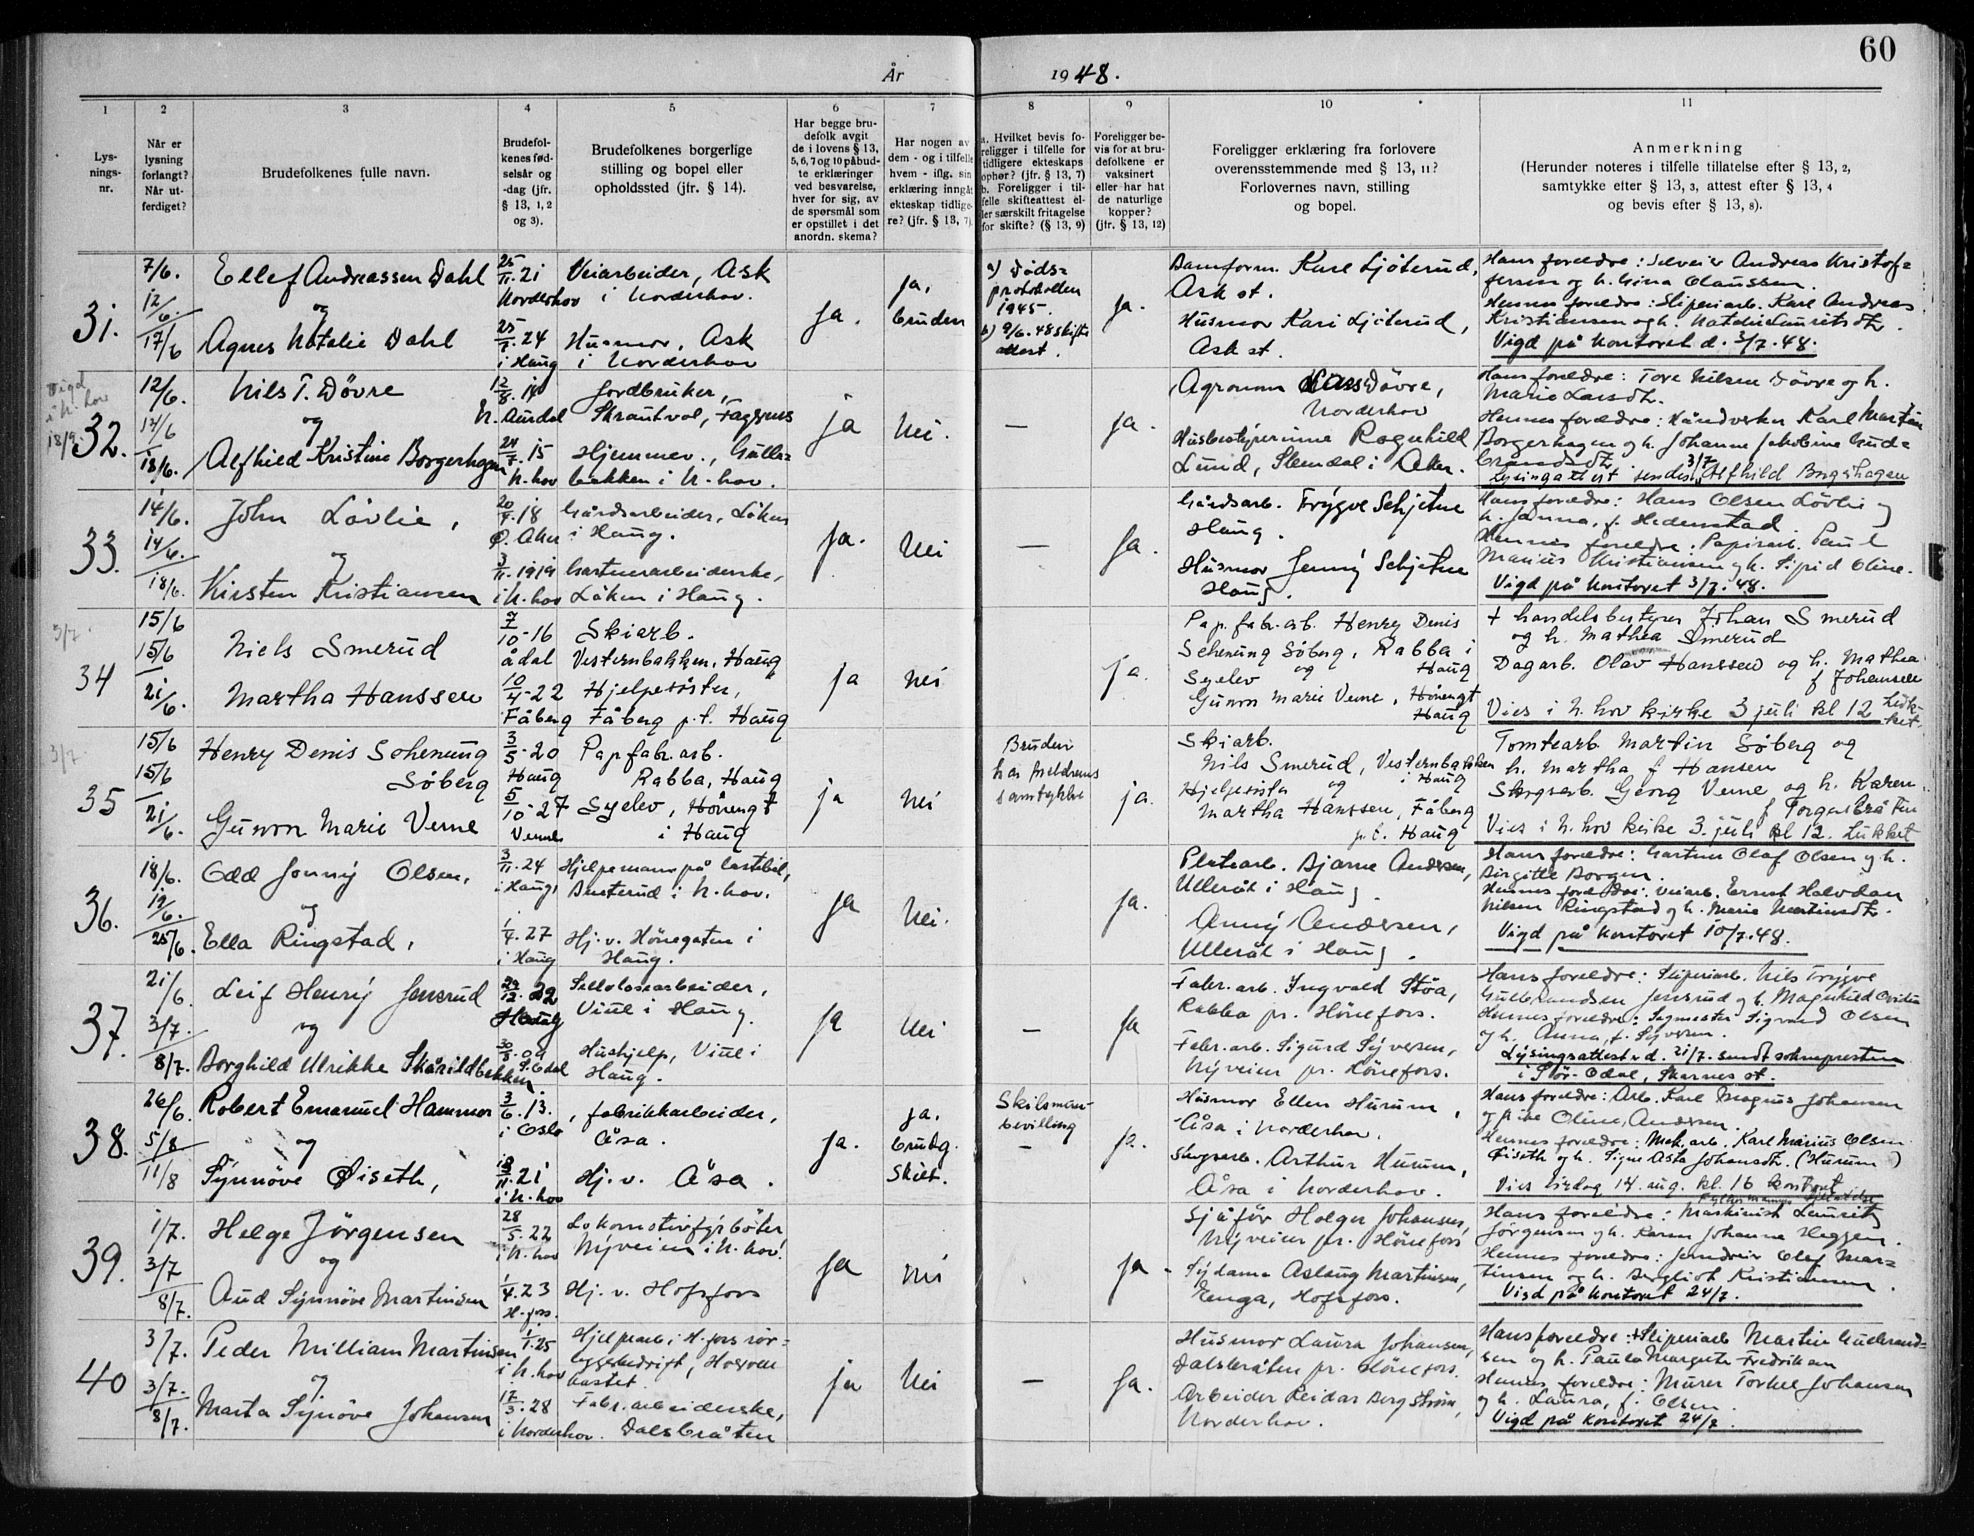 60
År 1948.
1 2 3 4 5 6 7 8 9 10 11
Lys-
nings-
nr.
Når er
lysning
forlangt?
Når ut-
ferdiget?
Brudefolkenes fulle navn.
Brudefol-
kenes fød-
selsår og
-dag (jfr.
§ 13, 1, 2
og 3).
Brudefolkenes borgerlige
stilling og bopel eller
opholdssted (jfr. § 14).
Har begge bru-
defolk avgit
de i lovens § 13,
5, 6, 7 og 10 påbud-
te erklæringer
ved besvarelse,
hver for sig, av
de spørsmål som
er opstillet i det
anordn. skema?
Har nogen av
dem - og i tilfelle
hvem - iflg. sin
erklæring inngåt
ekteskap tidlige-
re? (jfr. § 13, 7)
a. Hvilket bevis fo-
religger i tilfelle for
tidligere ekteskaps
ophør? (jfr. § 13, 7)
b. Foreligger i til-
felle skifteattest el-
ler særskilt fritagelse
for skifte? (§ 13, 9)
Foreligger be-
vis for at bru-
defolkene er
vaksinert
eller har hat
de naturlige
kopper?
(jfr. § 13, 12)
Foreligger erklæring fra forlovere
overensstemmende med § 13, 11?
Forlovernes navn, stilling
og bopel.
Anmerkning
(Herunder noteres i tilfelle tillatelse efter § 13, 2,
samtykke efter § 13, 3, attest efter § 13, 4
og bevis efter § 13, 8).
31.
7/6.
12/6.
17/6
Ellef Andreassen Dahl
og
Agnes Natalie Dahl
25/11.21
Norderhov
25/7.24
i Haug
Veiarbeider, Ask
i Norderhov.
Husmor, Ask
i Norderhov
Ja.
Ja,
bruden
a) Døds-
protokollen
1945.
b) 9/6.48 skifte
attest.
Ja.
Damform. Karl Ljöterud,
Ask st.
Husmor Kari Ljöterud,
Ask st.
Hans foreldre: Selveier Andreas Kristof-
fersen og h. Gina Olaussen.
Hennes foreldre: Sliperiarb. Karl Andreas
Kristiansen og h. Natalie Lauritsdtr.
Vigd på kontoret d. 3/7.48.
Vigd
i N. hov
18/9.
32.
12/6.
14/6
18/6.
Nils T. Dövre
og
Alfhild Kristine Borgerhagen
12/8.14
N. Aurdal
24/7.15
N. hov
Jordbruker,
Skrautvol, Fagernes
Hjemmev., Gulls-
bakken i N. hov.
ja
Nei.
—
ja.
Agronom Lars Dövre,
Norderhov
Husbestyrerinne Ragnhild
Lund, Slemdal i Aker.
Hans foreldre: Tore Nilsen Dövre og h.
Marie Larsdtr.
Hennes foreldre: Håndverker Karl Martin
Borgerhagen og h. Johanne Jakobine Gud-
brandsdtr
Lysingattest sendes 3/7 Alfhild Borgerhagen
33.
14/6.
14/6.
18/6.
John Lövlie,
og
Kirsten Kristiansen
20/4.18
Ø. Aker
3/11.1919
i N. hov
Gårdsarbeider, Löken
i Haug.
Gartnerarbeiderske,
Löken i Haug.
Ja.
Nei
—
Ja.
Gårdsarb. Trygve Schjetne
Haug.
Husmor Jenny Schjetne
Haug.
Hans foreldre: Hans Olsen Lövlie og
h. Janna, f. Hedenstad.
Hennes foreldre: Papirarb. Paul
Marius Kristiansen og h. Sigrid Oline.
Vigd på kontoret 3/7.48.
3/7.
34
15/6
15/6
21/6.
Niels Smerud
Martha Hanssen
7/10-16
Ådal
10/4-22
Fåberg
Skiarb.
Vesternbakken, Haug
Hjelpesöster,
Fåberg p.t. Haug
ja
nei
ja.
Pap. fabr. arb. Henry Denis
Schenung Söberg, Rabba i
og Haug
Syelev
Gunvor Marie Verne, Hönengt
Haug
+ handelsbestyrer Johan Smerud
og h. Mathea Smerud
Dagarb. Olav Hanssen og h. Mathea
f Johansen
Vies i N. hov kirke 3 juli kl 12
3/7.
35
15/6
15/6
21/6.
Henry Denis Schenung
Söberg
Gunvor Marie Verne
3/5-20
Haug
5/10-27
Verne
Pap fabr. arb.
Rabba, Haug
Syelev, Hönengt
i Haug
ja
nei
Bruden
har foreldrenes
samtykke
ja.
Skiarb.
Nils Smerud, Vesternbakken
i Haug
Hjelpesöster og
Martha Hanssen, Fåberg
p.t. Haug
Tomtearb. Martin Söberg og
h. Martha f Hansen
Skogsarb. Georg Verne og h. Karen
f Torgersbråten
Vies i N. hov kirke 3. juli kl 12. Lukket
36.
18/6.
19/6.
25/6.
Odd Jonny Olsen,
og
Ella Ringstad,
3/11.24
i Haug
1/4.27
i Haug
Hjelpemann på lastebil,
Busterud i N. hov.
Hj. v. Hönegaten i
Haug.
Ja
Nei.
Ja.
Platearb. Bjarne Andersen,
Ulleråt i Haug.
Anny Andersen,
Ulleråt i Haug.
Hans foreldre: Gartner Olaf Olsen og h.
Birgitte Borgen.
Hennes foreldre: Veiarb. Ernst Halvdan
Nilsen Ringstad og h. Marie Martinsdtr.
Vigd på kontoret 10/7.48.
37.
21/6.
3/7.
8/7.
Leif Henry Jensrud
og
Borghild Ulrikke Skårildbekken
29/12.22
Haug
30/8.09
S. Odal
Sellulosearbeider,
Viul i Haug.
Hushjelp, Viul i
Haug.
Ja
Nei
—
Ja
Fabr. arb. Ingvald Stöa,
Rabba pr. Hönefoss.
Fabr. arb. Sigurd Syversen,
Nyveien pr. Hönefoss.
Hans foreldre: Sliperiarb. Nils Trygve
Gulbrandsen Jensrud og h. Magnhild
Hennes foreldre: Sagmester Sigvard Olsen
og h. Anna, f. Syversen.
Lysingsattest d. 21/7. sendt sokneprest
i Stor-Odal, Skarnes st.
38.
26/6.
5/8
11/8
Robert Emanuel Hammer
og
Synnöve Øiseth,
3/6.13.
i Oslo
11.21
i N. hov
fabrikkarbeider,
Åsa.
Hj. v. Åsa.
Ja.
Ja.
brudg.
skilt.
Skilsmis-
bevilling
—
ja.
Husmor Ellen Hurum,
Åsa i Norderhov.
Skogsarb. Arthur Hurum,
Åsa i Norderhov.
Hans foreldre: Arb. Karl Magnus Johansen
og pike Oline Andersen.
Hennes foreldre: Mek. arb. Karl Marius Olsen
Øiseth og h. Signe Asta Johansdtr. (Hurum)
Vies lördag 14. aug. kl. 16 kontoret
Fylkesmannens tillatelse
39.
1/7.
3/7
8/7.
Helge Jörgensen
og
Aud Synnöve Martinsen
28/5.22
i N. hov
1/4.23
H. foss.
Lokomotivfyrböter
Nyveien i N. hov.
Hj. v. Hofsfoss
Ja
nei
—
Ja.
Sjåför Holger Johansen,
Nyveien pr. Hönefoss
Sydame Aslaug Martinsen,
Enga, Hofsfoss.
Hans foreldre: Maskinist Laurits
Jörgensen og h. Karen Johanne Heggen.
Hennes foreldre: Jendreier Olaf Mar-
tinsen og h. Bergliot Kristiansen.
Vigd på kontoret 24/7.
40
3/7.
3/7.
8/7.
Peder William Martinsen
og
Marta Synöve Johansen
1/1.25
i N. hov
17/3.28
i Norderhov.
Hjelpearb. i H. foss rör-
leggerbedrift,
Fabr. arbeiderske,
Dalsbråten
ja
Nei
—
Ja.
Husmor Laura Johansen,
Dalsbråten pr. Hönefoss.
Arbeider Reidar Bergström,
Norderhov.
Hans foreldre: + Sliperiarb Martin Gudbrand-
sen og h. Paula Margrete Fredriksen
Hennes foreldre: Murer Torkel Johansen
og h. Laura, f. Olsen.
Vigd på kontoret 24/7.